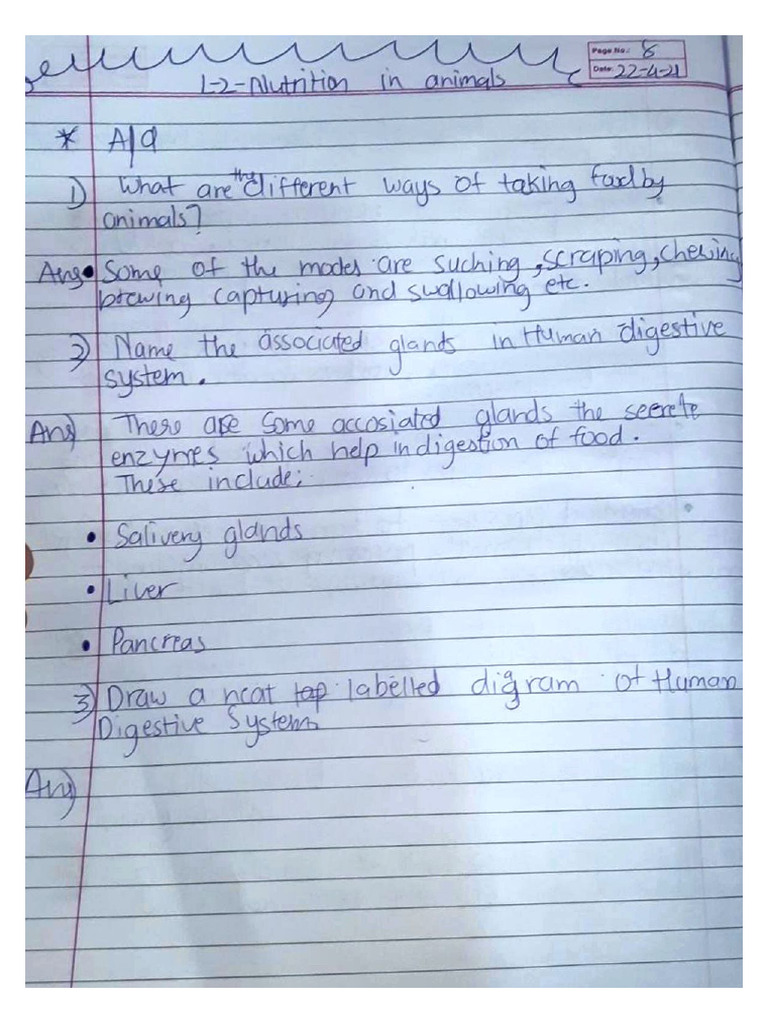 Page No.: 8
Date: 22-4-21
L-2-Nutrition in animals
* A/Q
1) What are the different ways of taking food by
animals?
Ans • Some of the modes are suching, scraping, chewing
brewing capturing and swallowing etc.
2) Name the associated glands in Human digestive
system.
Ans) There are some accosiated glands the secrete
enzymes which help in digestion of food.
These include:
• Salivery glands
• Liver
• Pancreas
3) Draw a neat labelled digram of Human
Digestive System
Ans)